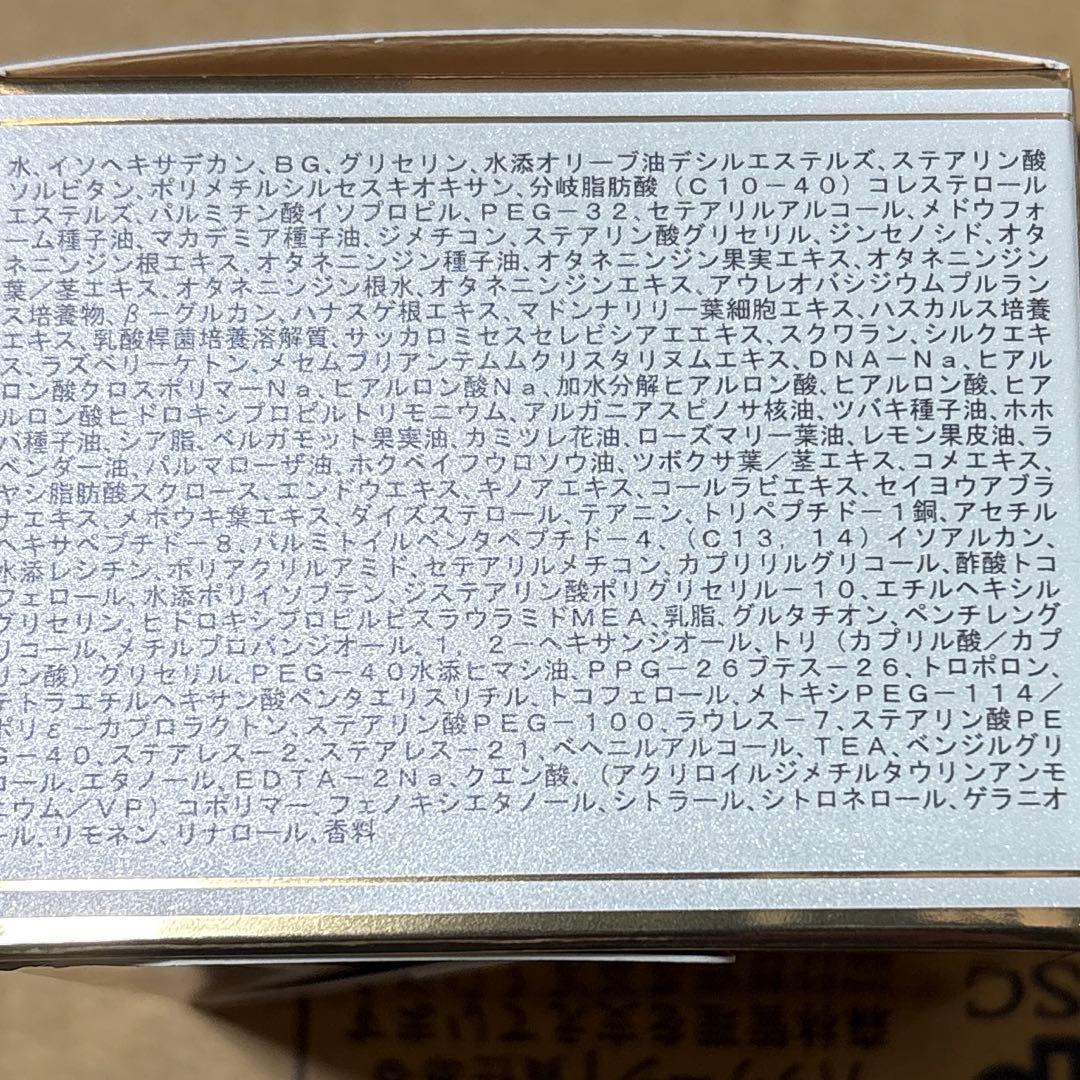 水、イソヘキサデカン、BG、グリセリン、水添オリーブ油デシルエステルズ、ステアリン酸
ソルビタン、ポリメチルシルセスキオキサン、分岐脂肪酸（C10－40）コレステロール
エステルズ、パルミチン酸イソプロピル、PEG－32、セテアリルアルコール、メドウフォ
ーム種子油、マカデミア種子油、ジメチコン、ステアリン酸グリセリル、ジンセノシド、オタ
ネニンジン根エキス、オタネニンジン種子油、オタネニンジン果実エキス、オタネニンジン
葉／茎エキス、オタネニンジン根水、オタネニンジンエキス、アウレオバシジウムプルラン
ス培養物、β－グルカン、ハナスゲ根エキス、マドンナリリー葉細胞エキス、ハスカルス培養
エキス、乳酸桿菌培養溶解質、サッカロミセスセレビシアエエキス、スクワラン、シルクエキ
ス、ラズベリーケトン、メセムブリアンテムムクリスタリヌムエキス、DNA－Na、ヒアル
ロン酸クロスポリマーNa、ヒアルロン酸Na、加水分解ヒアルロン酸、ヒアルロン酸、ヒア
ルロン酸ヒドロキシプロピルトリモニウム、アルガニアスピノサ核油、ツバキ種子油、ホホ
バ種子油、シア脂、ベルガモット果実油、カミツレ花油、ローズマリー葉油、レモン果皮油、ラ
ベンダー油、パルマローザ油、ホクベイフウロソウ油、ツボクサ葉／茎エキス、コメエキス、
ヤシ脂肪酸スクロース、エンドウエキス、キノアエキス、コールラビエキス、セイヨウアブラ
ナエキス、メボウキ葉エキス、ダイズステロール、テアニン、トリペプチド－1銅、アセチル
ヘキサペプチド－8、パルミトイルペンタペプチド－4、（C13，14）イソアルカン、
水添レシチン、ポリアクリルアミド、セテアリルメチコン、カプリリルグリコール、酢酸トコ
フェロール、水添ポリイソブテン、ジステアリン酸ポリグリセリル－10、エチルヘキシル
グリセリン、ヒドロキシプロピルビスラウラミドMEA、乳脂、グルタチオン、ペンチレング
リコール、メチルプロパンジオール、1，2－ヘキサンジオール、トリ（カプリル酸／カプ
リン酸）グリセリル、PEG－40水添ヒマシ油、PPG－26ブテス－26、トロポロン、
テトラエチルヘキサン酸ペンタエリスリチル、トコフェロール、メトキシPEG－114／
ポリε－カプロラクトン、ステアリン酸PEG－100、ラウレス－7、ステアリン酸PE
G－40、ステアレス－2、ステアレス－21、ベヘニルアルコール、TEA、ベンジルグリ
コール、エタノール、EDTA－2Na、クエン酸、（アクリロイルジメチルタウリンアンモ
ニウム／VP）コポリマー、フェノキシエタノール、シトラール、シトロネロール、ゲラニオ
ール、リモネン、リナロール、香料